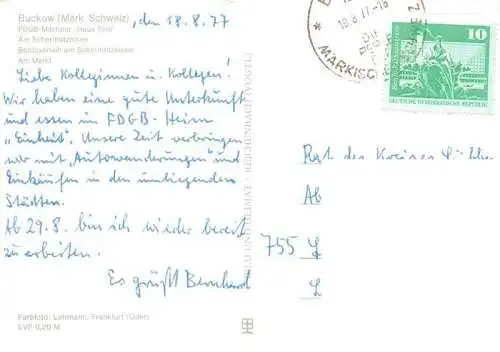 Buckow (Märk. Schweiz) , den 18.8.77
FDGB-Mächina "Haus Tino"
Am Schermützelsee
Bootsverleih am Schermützelsee
Am Markt
Liebe Kolleginnen u. Kollegen!
Wir haben eine gute Unterkunft
und essen im FDGB-Heim
"Einheit". Unsere Zeit verbringen
wir mit "Autowanderungen" und
Einkäufen in den umliegenden
Städten.
Ab 29.8. bin ich wieder bereit
zu arbeiten.
Es grüßt Bernhard
Farbfoto: Lehmann, Frankfurt (Oder)
EVP 0,20 M
BILD UND HEIMAT · REICHENBACH (VOGTL)
18.8.77-18
MÄRKISCH
10
DEUTSCHE DEMOKRATISCHE REPUBLIK
Rat des Kreises
Ab
755